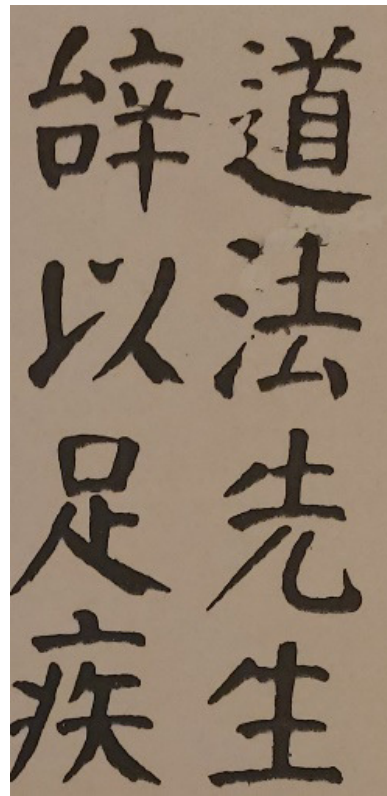 道法先生
辝以足疾